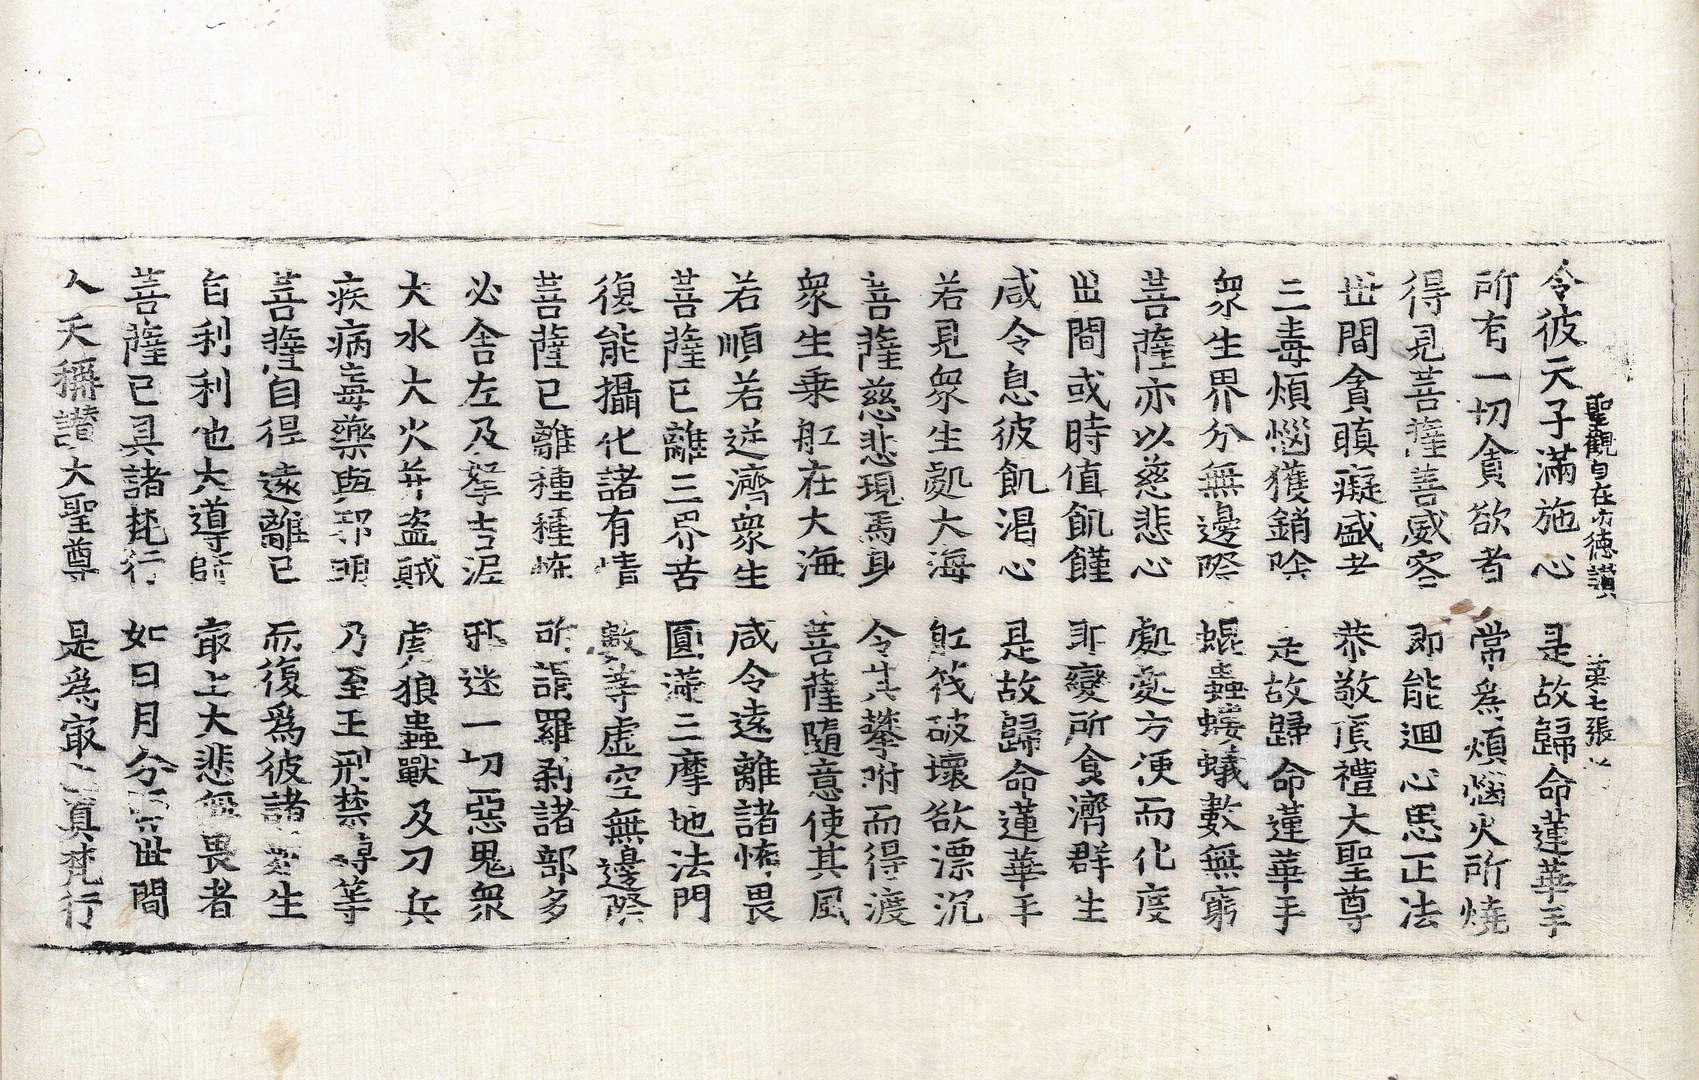 聖觀自在功德讃 苐七張
令彼天子滿施心 是故歸命蓮華手
所有一切貪欲者 常為煩惱火所燒
得見菩薩善威容 即能迴心思正法
世間貪瞋癡盛者 恭敬頂禮大聖尊
三毒煩惱獲銷除 是故歸命蓮華手
衆生界分無邊際 蜫蟲螻蟻數無窮
菩薩亦以慈悲心 處處方便而化度
世間或時值飢饉 即變所食濟群生
咸令息彼飢渴心 是故歸命蓮華手
若見衆生處大海 舡筏破壞欲漂沉
菩薩慈悲現馬身 令其攀附而得渡
衆生乗舡在大海 菩薩隨意使其風
若順若逆濟衆生 咸令遠離諸怖畏
菩薩已離三界苦 圓滿三摩地法門
復能攝化諸有情 數等虛空無邊際
菩薩已離種種怖 所謂羅剎諸部多
必舍左及拏吉涩 邪迷一切惡鬼衆
大水大火并盜賊 虎狼蟲獸及刀兵
疾病毒藥與邪明 乃至王刑禁縛等
菩薩自得遠離已 而復爲彼諸衆生
自利利他大導師 㝡上大悲無畏者
菩薩已具諸梵行 如日月分 世間
人天稱讃大聖尊 是爲㝡上真梵行